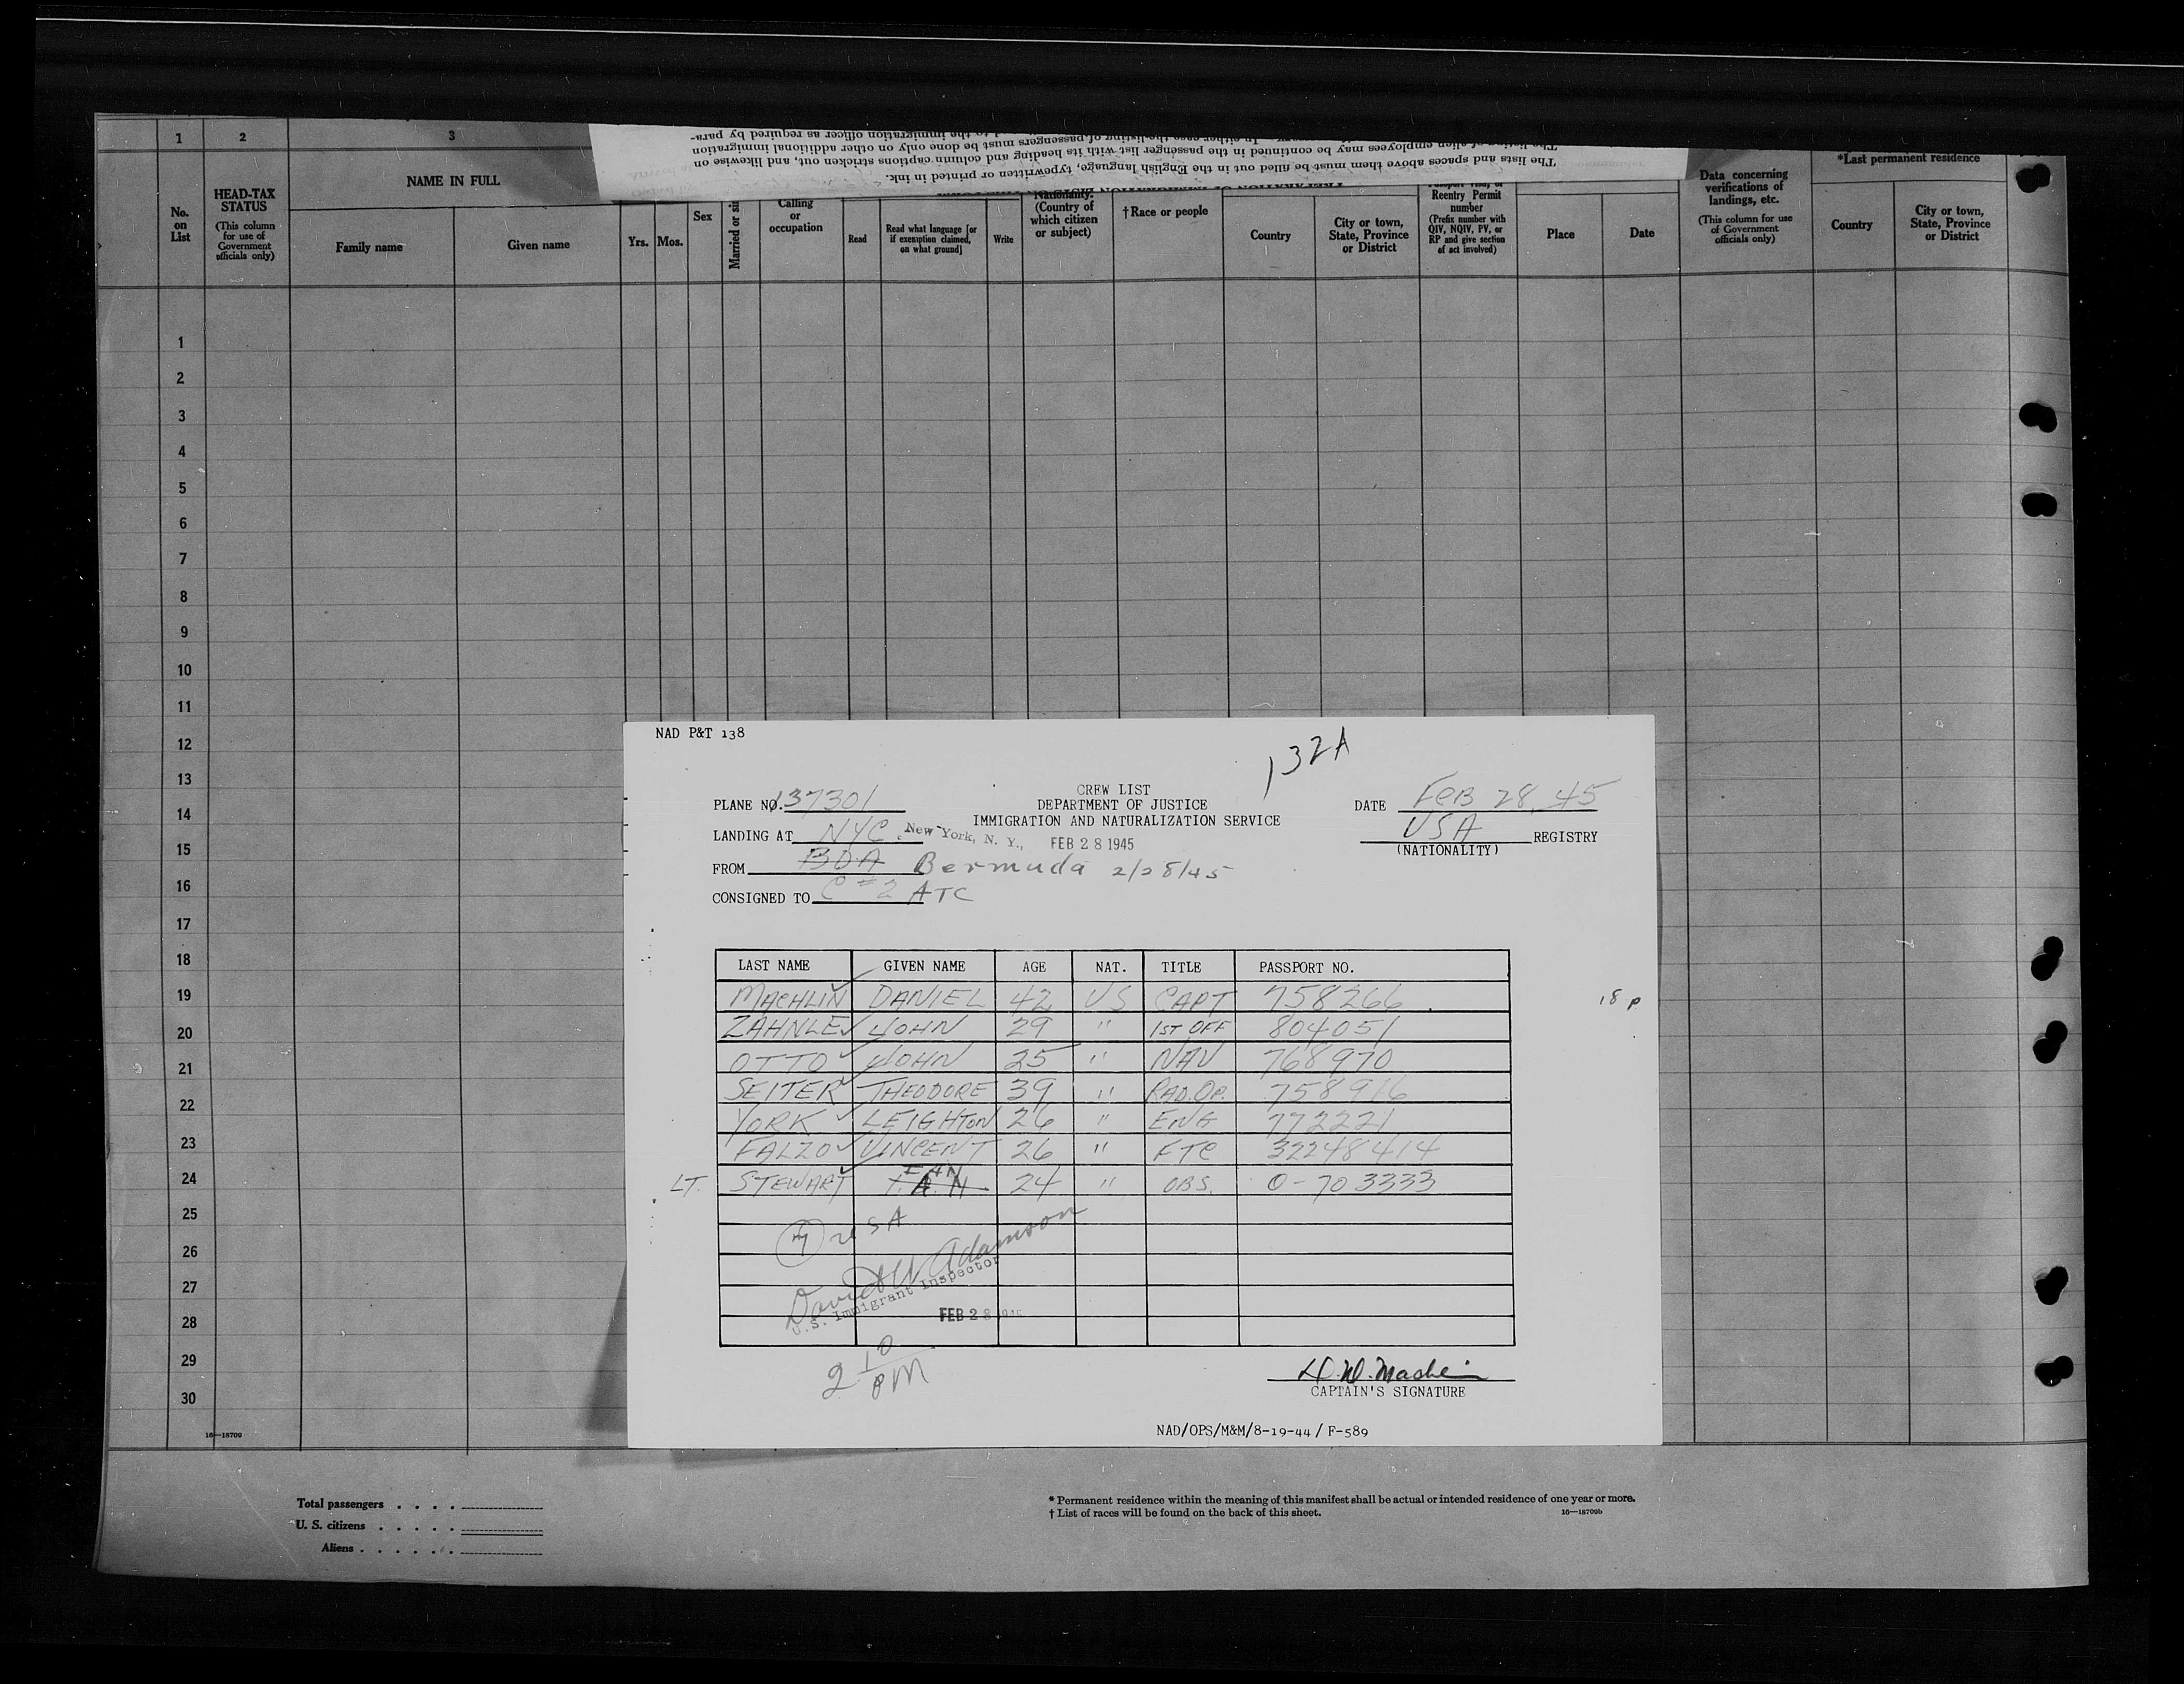 1 2 3
HEAD-TAX STATUS
(This column for use of Government officials only)
No. on List
NAME IN FULL
Family name
Given name
Yrs. Mos.
Sex
Married or si
Calling or occupation
Read
Read what language [or if exemption claimed, on what ground]
Write
Nationality. (Country of which citizen or subject)
†Race or people
Country
City or town, State, Province or District
Reentry Permit number
(Prefix number with QIV, NQIV, PV, or RP and give section of act involved)
Place
Date
Data concerning verifications of landings, etc.
(This column for use of Government officials only)
*Last permanent residence
Country
City or town, State, Province or District
The lists and spaces above them must be filled out in the English language, typewritten or printed in ink.
employees may be continued in the passenger list with its heading and column captions stricken out, and likewise on
the listing of passengers must be done only on other additional immigration
to the immigration officer as required by para-
1
2
3
4
5
6
7
8
9
10
11
12
13
14
15
16
17
18
19
20
21
22
23
24
25
26
27
28
29
30
16—18709
NAD P&T 138
132A
CREW LIST
DEPARTMENT OF JUSTICE
IMMIGRATION AND NATURALIZATION SERVICE
PLANE NO. 137301
DATE FEB 28, 45
LANDING AT NYC. New York, N. Y., FEB 28 1945
USA REGISTRY
(NATIONALITY)
FROM BDA Bermuda 2/28/45
CONSIGNED TO C #2 ATC
LAST NAME GIVEN NAME AGE NAT. TITLE PASSPORT NO.
MACHLIN DANIEL 42 US CAPT 758266
18 p
ZAHNLE JOHN 29 " 1ST OFF 804051
OTTO JOHN 25 " NAV 768970
SEITER THEODORE 39 " RAD.OP. 758916
YORK LEIGHTON 26 " ENG 772221
FALZO VINCENT 26 " FTC 32248414
LT. STEWART IAN 24 " OBS. O-703333
7 USA
David W Adamson
U.S. Immigrant Inspector
FEB 28 1945
2 10 PM
D. W. Machlin
CAPTAIN'S SIGNATURE
NAD/OPS/M&M/8-19-44/F-589
Total passengers
U. S. citizens
Aliens
* Permanent residence within the meaning of this manifest shall be actual or intended residence of one year or more.
† List of races will be found on the back of this sheet.
16—18709b